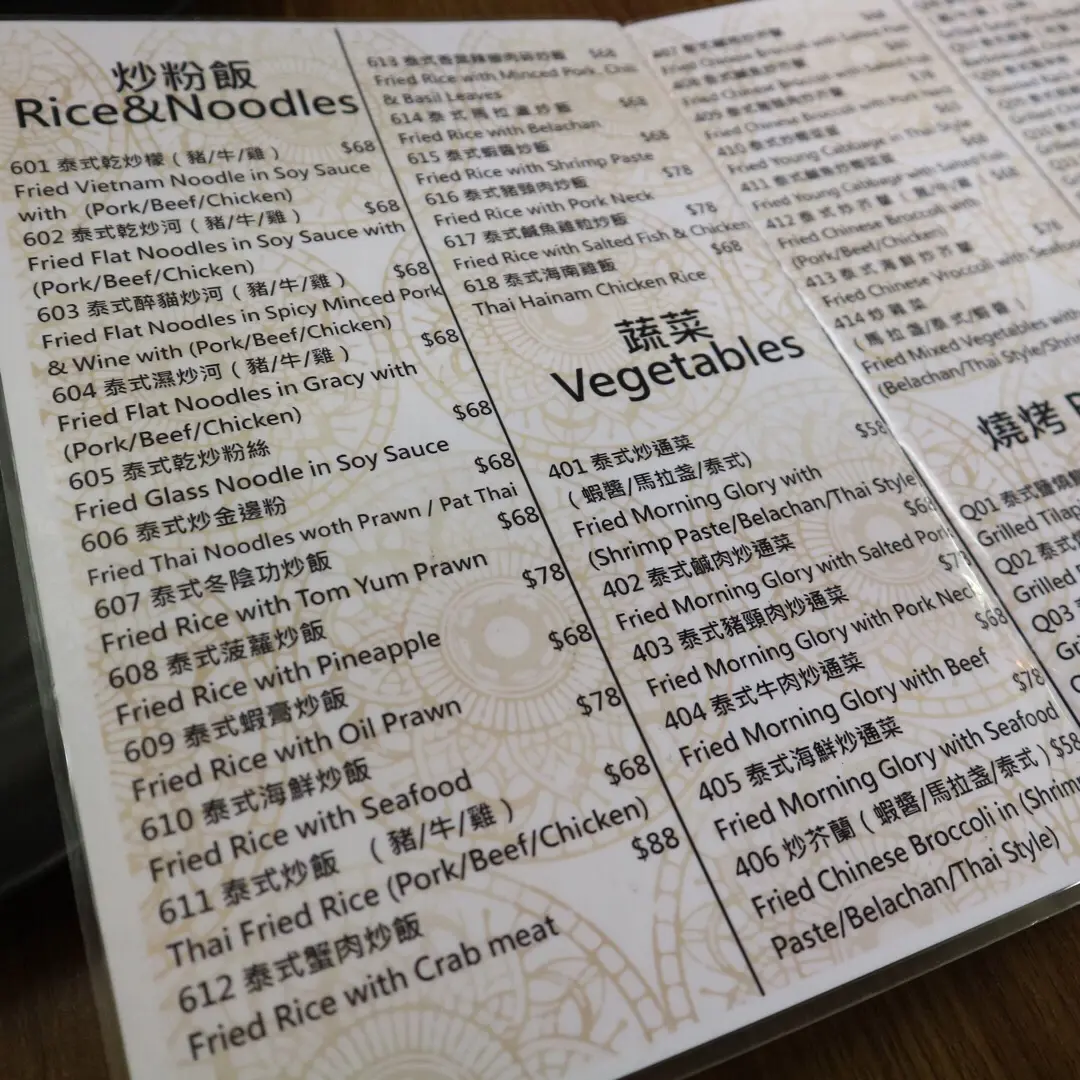 炒粉飯
Rice&Noodles
601 泰式乾炒檬 ( 豬/牛/雞 ) $68
Fried Vietnam Noodle in Soy Sauce
with (Pork/Beef/Chicken)
602 泰式乾炒河 ( 豬/牛/雞 ) $68
Fried Flat Noodles in Soy Sauce with
(Pork/Beef/Chicken)
603 泰式醉貓炒河 ( 豬/牛/雞 ) $68
Fried Flat Noodles in Spicy Minced Pork
& Wine with (Pork/Beef/Chicken)
604 泰式濕炒河 ( 豬/牛/雞 ) $68
Fried Flat Noodles in Gracy with
(Pork/Beef/Chicken)
605 泰式乾炒粉絲 $68
Fried Glass Noodle in Soy Sauce
606 泰式炒金邊粉 $68
Fried Thai Noodles woth Prawn / Pat Thai
607 泰式冬陰功炒飯 $68
Fried Rice with Tom Yum Prawn
608 泰式菠蘿炒飯 $78
Fried Rice with Pineapple
609 泰式蝦膏炒飯 $68
Fried Rice with Oil Prawn
610 泰式海鮮炒飯 $78
Fried Rice with Seafood
611 泰式炒飯 ( 豬/牛/雞 ) $68
Thai Fried Rice (Pork/Beef/Chicken)
612 泰式蟹肉炒飯 $88
Fried Rice with Crab meat
613 泰式香葉辣椒肉碎炒飯 $68
Fried Rice with Minced Pork, Chili
& Basil Leaves
614 泰式馬拉盞炒飯 $68
Fried Rice with Belachan
615 泰式蝦醬炒飯 $68
Fried Rice with Shrimp Paste
616 泰式豬頸肉炒飯 $78
Fried Rice with Pork Neck
617 泰式鹹魚雞粒炒飯 $78
Fried Rice with Salted Fish & Chicken
618 泰式海南雞飯 $68
Thai Hainam Chicken Rice
蔬菜
Vegetables
401 泰式炒通菜 $58
( 蝦醬/馬拉盞/泰式)
Fried Morning Glory with
(Shrimp Paste/Belachan/Thai Style
402 泰式鹹肉炒通菜 $68
Fried Morning Glory with Salted Pork
403 泰式豬頸肉炒通菜
Fried Morning Glory with Pork Neck
404 泰式牛肉炒通菜 $68
Fried Morning Glory with Beef
405 泰式海鮮炒通菜 $78
Fried Morning Glory with Seafood
406 炒芥蘭 ( 蝦醬/馬拉盞/泰式 ) $58
Fried Chinese Broccoli in (Shrimp
Paste/Belachan/Thai Style)
407
Fried Chinese Broccoli with Salted
408
Fried Chinese Broccoli with Salted Fish
409
Fried Chinese Broccoli with Pork Neck
410 泰式炒椰菜苗
Fried Young Cabbage in Thai Style
411 泰式鹹魚炒椰菜苗
Fried Young Cabbage with Salted Fish
412 泰式炒芥蘭 ( 豬/牛/雞 ) $68
Fried Chinese Beroccoli with
(Pork/Beef/Chicken)
413 泰式海鮮炒芥蘭 $78
Fried Chinese Vroccoli with Seafood
414 炒雜菜
( 馬拉盞/泰式/蝦醬 )
Fried Mixed Vegetables with
(Belachan/Thai Style/Shrimp
燒烤
Q01 泰式鹽燒
Grilled Tilap
Q02 泰式
Grilled
Q03